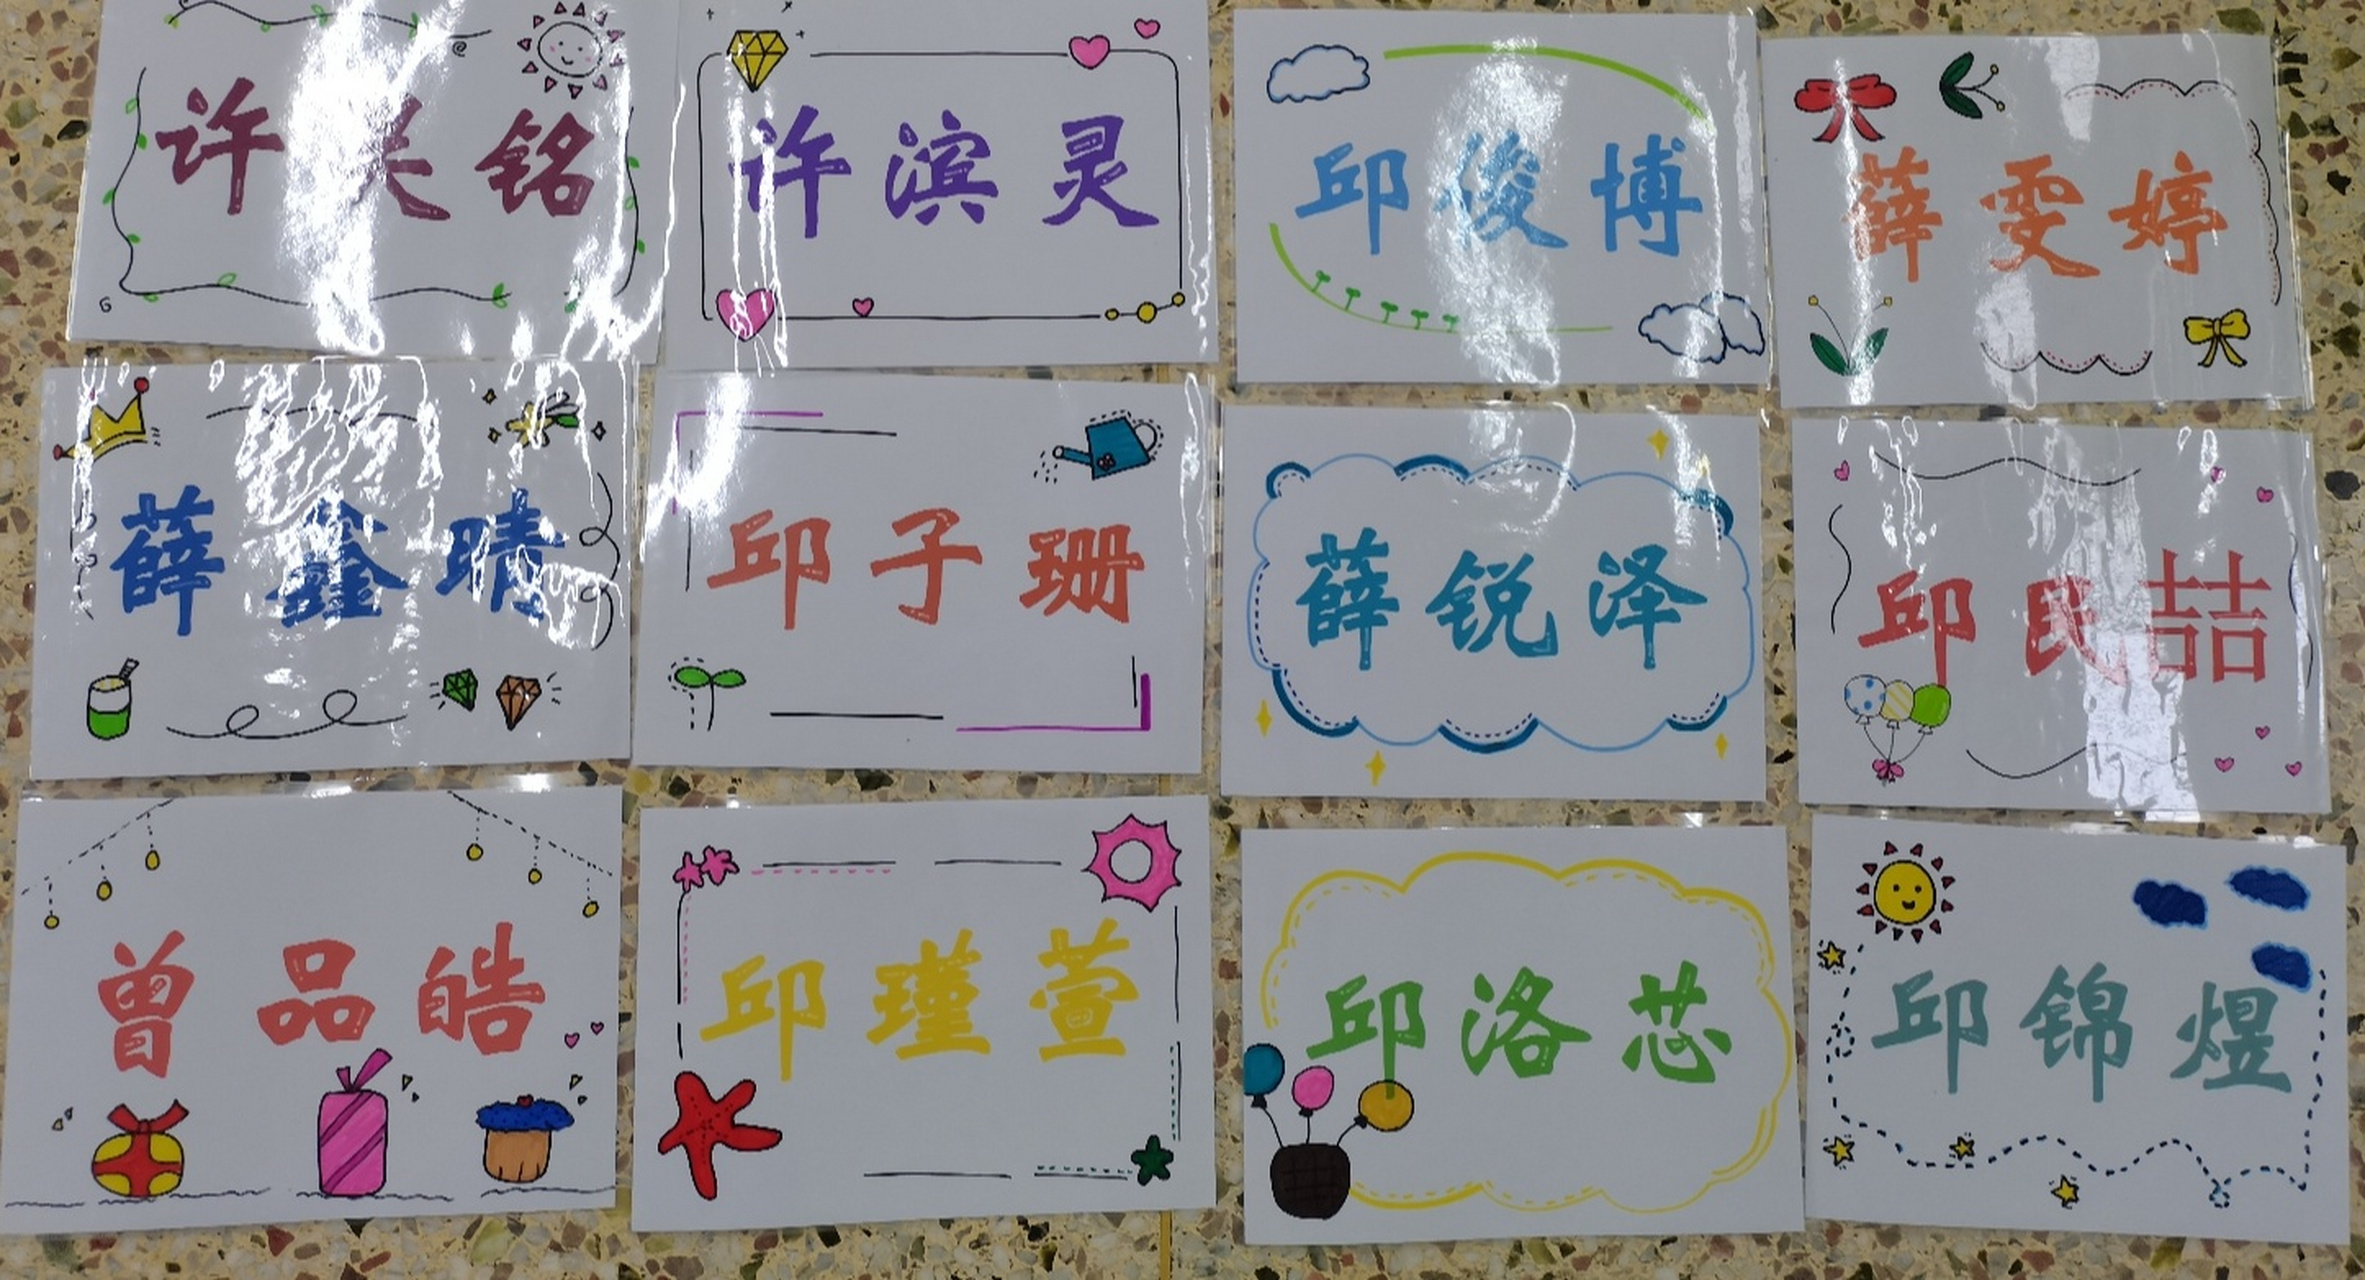 许 铭
许滨灵
邱俊博
薛雯婷
薛鑫晴
邱子珊
薛锐泽
邱民喆
曾品皓
邱瑾萱
邱洛芯
邱锦煜